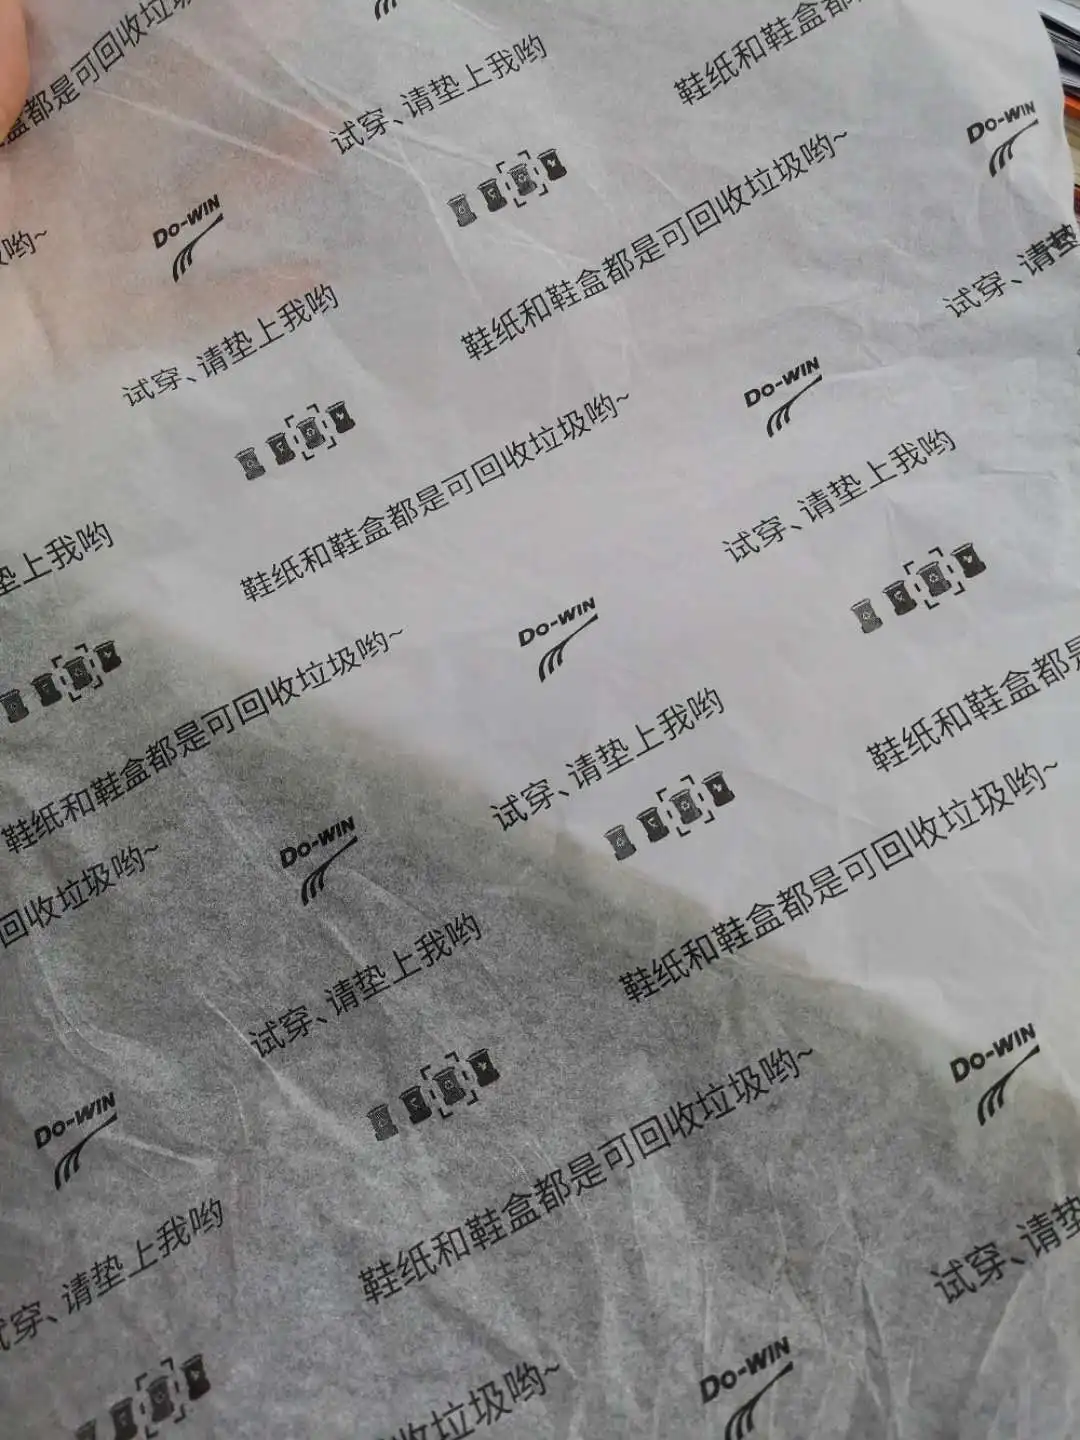 盒都是可回收垃圾
试穿、请垫上我哟
鞋纸和鞋盒都
DO-WIN
DO-WIN
圾哟~
鞋纸和鞋盒都是可回收垃圾哟~
试穿、请垫
试穿、请垫上我哟
DO-WIN
鞋纸和鞋盒都是可回收垃圾哟~
试穿、请垫上我哟
垫上我哟
DO-WIN
鞋纸和鞋盒都是可回收垃圾哟~
试穿、请垫上我哟
鞋纸和鞋盒都是
DO-WIN
回收垃圾哟~
鞋纸和鞋盒都是可回收垃圾哟~
试穿、请垫上我哟
DO-WIN
DO-WIN
鞋纸和鞋盒都是可回收垃圾哟~
试穿、请垫
试穿、请垫上我哟
DO-WIN
收垃圾哟~